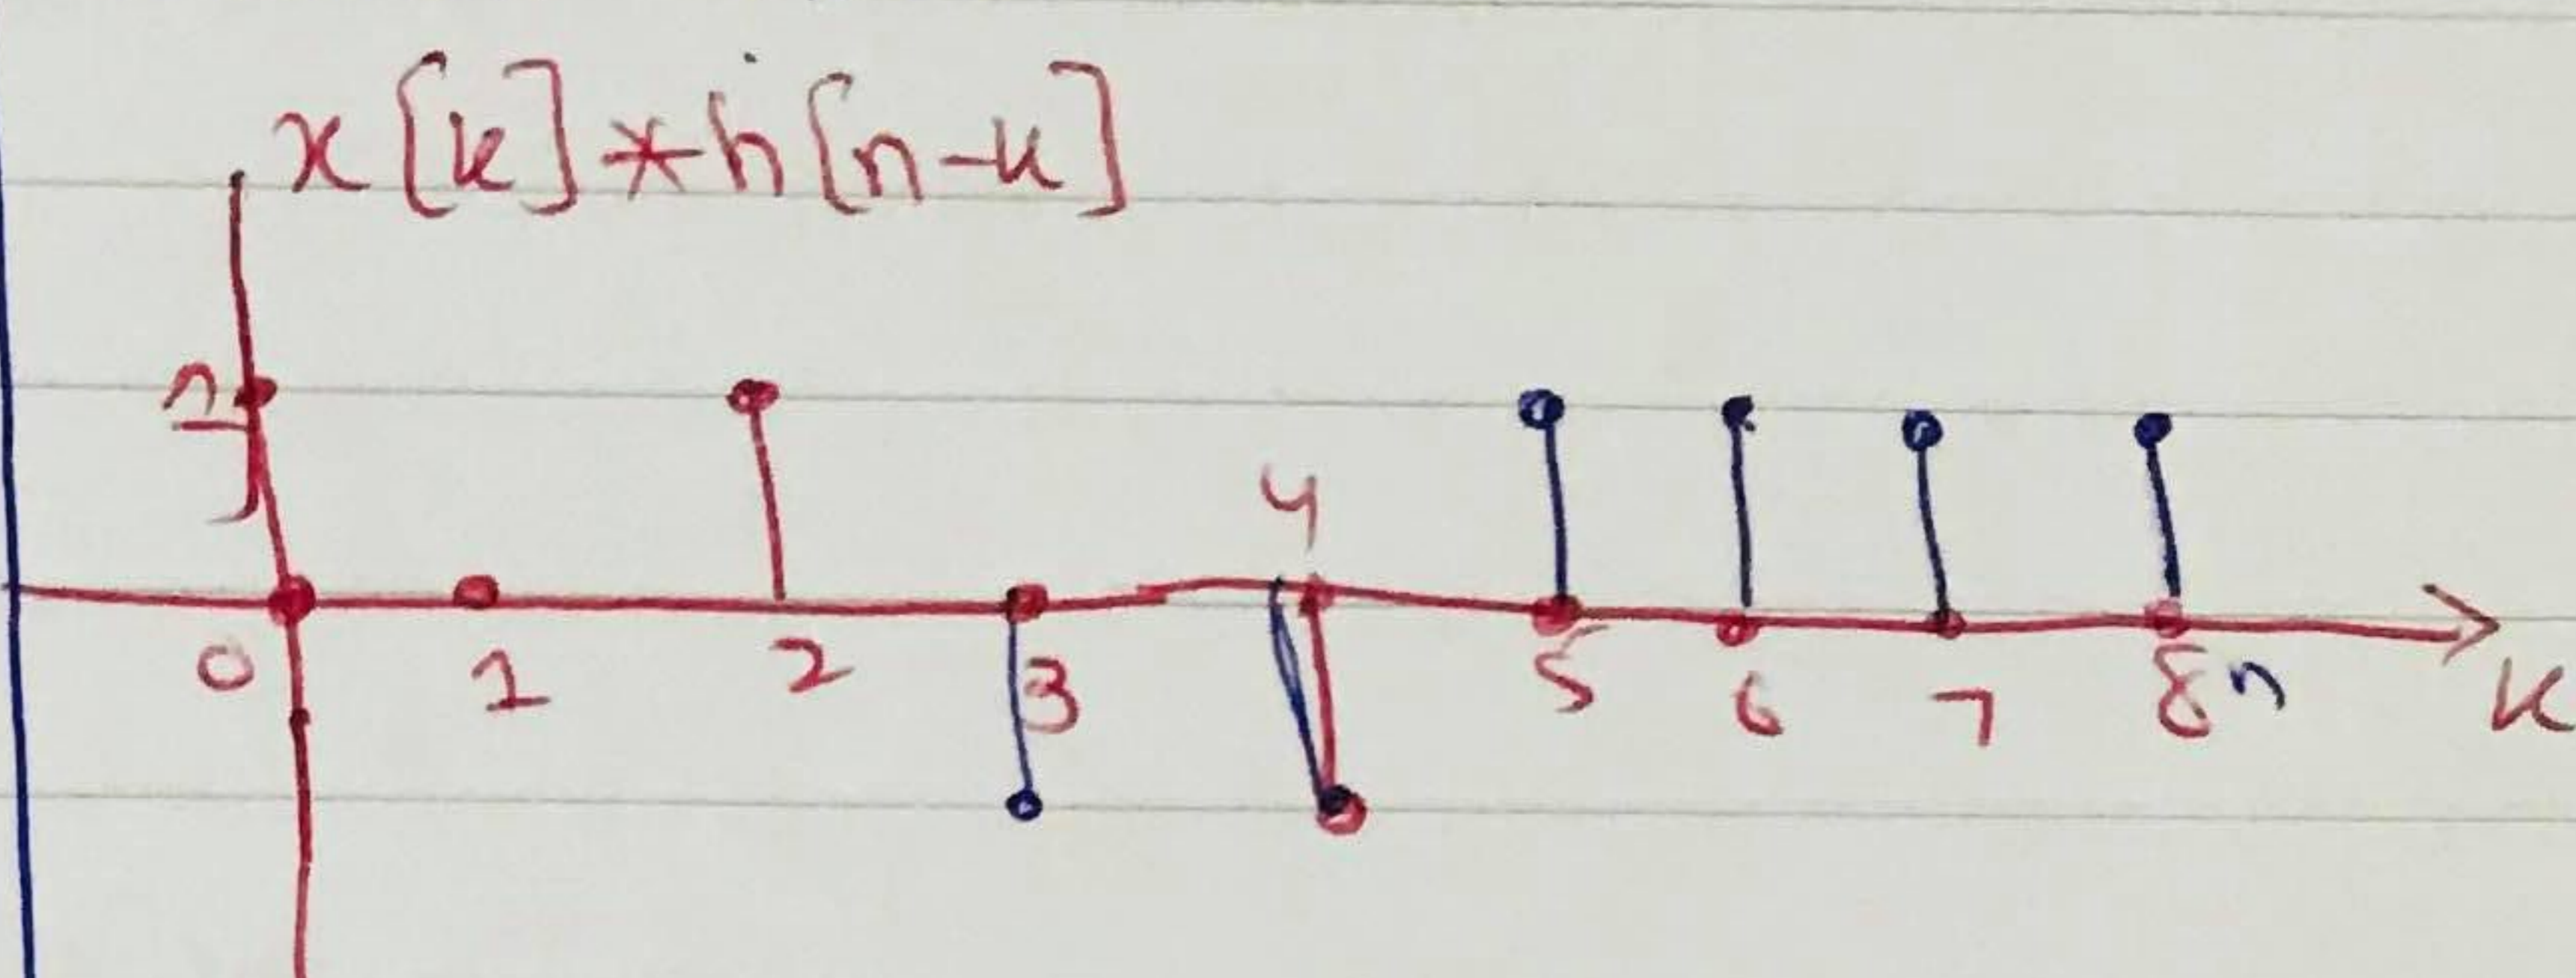 x[k]*h[n-k]
0 1 2 3 4 5 6 7 8 n k